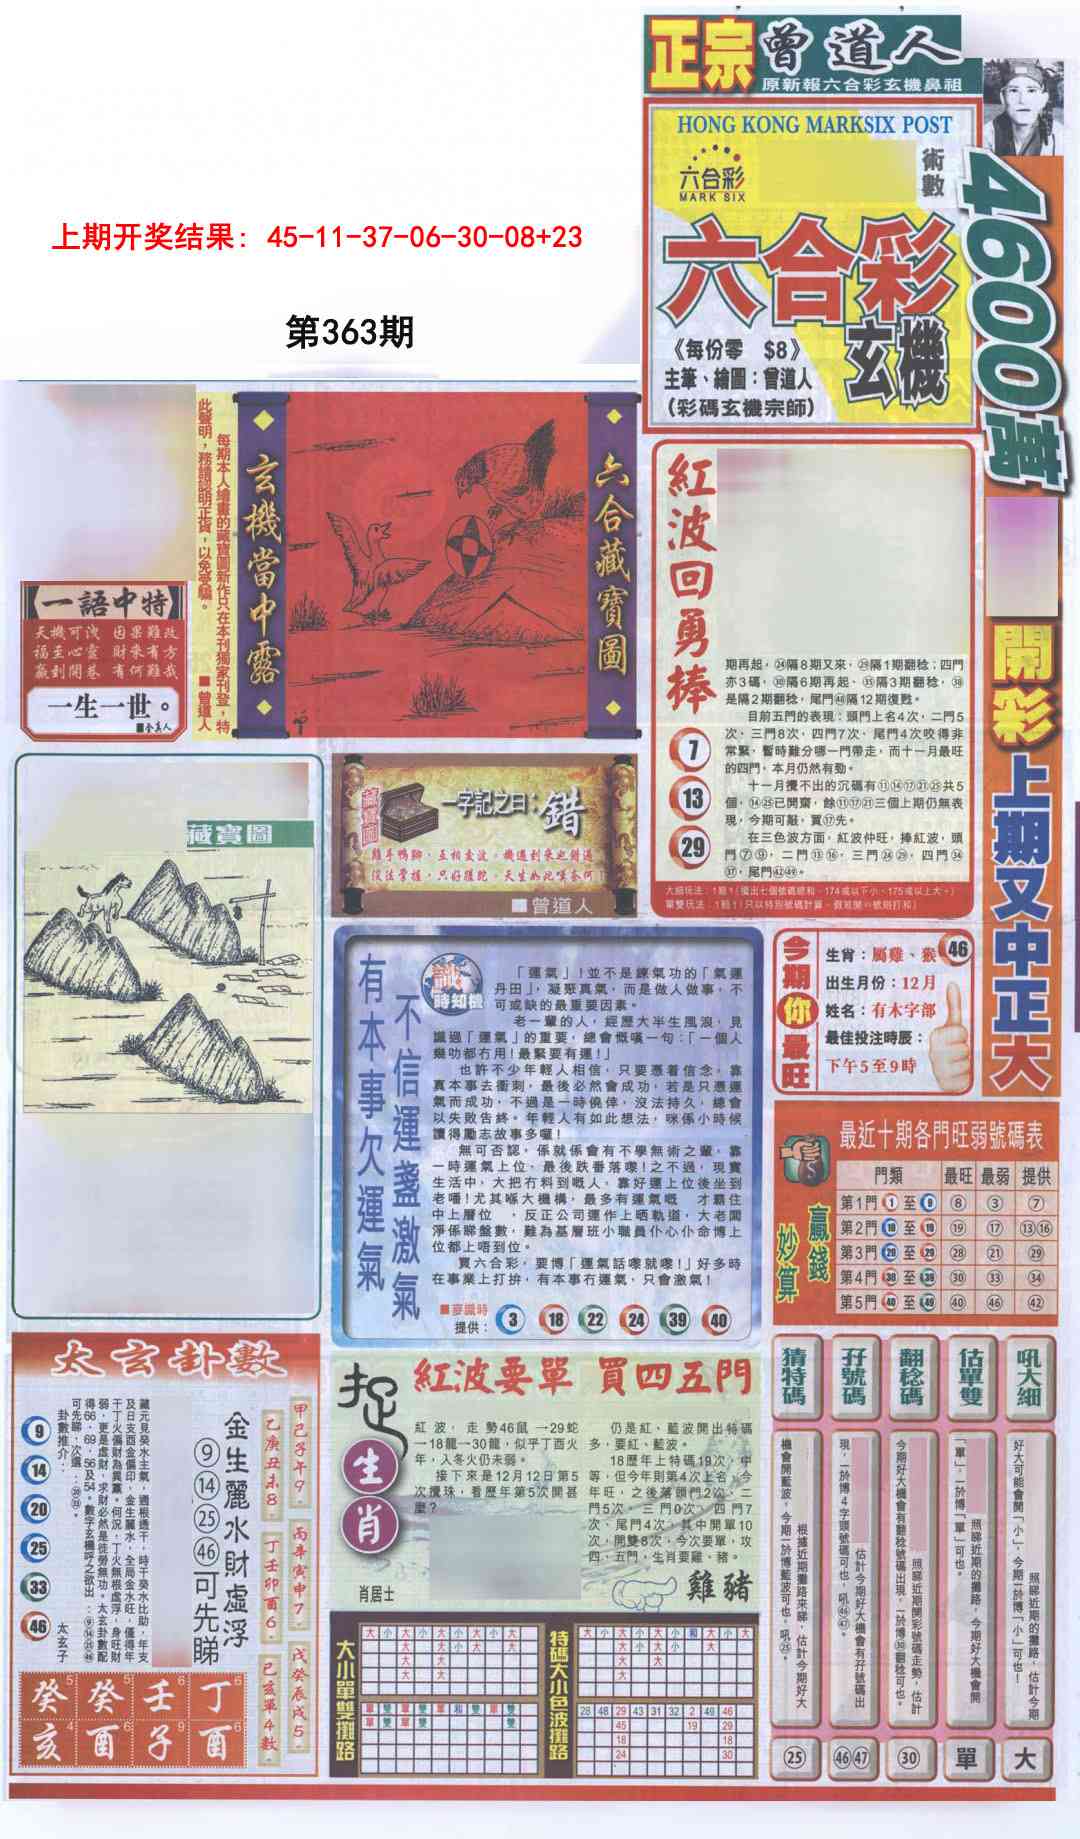 正宗曾道人
原新報六合彩玄機鼻祖
HONG KONG MARKSIX POST
六合彩
MARK SIX
術數
六合彩
玄機
《每份零 $8》
主筆、繪圖：曾道人
（彩碼玄機宗師）
4600萬
開彩上期又中正大
上期开奖结果: 45-11-37-06-30-08+23
第363期
每期本人繪畫的藏寶圖新作只在本刊獨家刊登，特
此聲明，務請認明正貨，以免受騙。
■曾道人
六合藏寶圖
玄機當中露
一語中特
天機可洩 因果難改
福至心靈 財來有方
贏到開巷 有何難哉
一生一世。
藏寶圖
一字記之曰：錯
藏寶圖
雞手鴨腳，互相交波。機遇到來也錯過
沒法掌握，只好獲蛇。天生如此嘆奈何！
■曾道人
紅波回勇棒
7
13
29
期再起，㉔隔8期又來，㉙隔1期翻稔；四門
亦3碼，㉚隔6期再起，㉟隔3期翻稔，㊳
是隔2期翻稔，尾門㊵隔12期復甦。
目前五門的表現：頭門上名4次，二門5
次，三門8次，四門7次，尾門4次咬得非
常緊，暫時難分哪一門帶走，而十一月最旺
的四門，本月仍然有勁。
十一月攪不出的沉碼有⑪⑭⑰㉑㉕共5
個，⑭㉕已開齋，餘⑪⑰㉑三個上期仍無表
現，今期可敲，買⑰先。
在三色波方面，紅波仲旺，捧紅波，頭
門⑦⑨，二門⑬⑯，三門㉔㉙，四門㉞
㊲，尾門㊷㊾。
大細玩法：1賠1（攪出七個號碼總和，174或以下小，175或以上大。）
單雙玩法：1賠1（只以特別號碼計算，假若開㊾號則打和）
今期你最旺
生肖：屬雞、猴
46
出生月份：12月
姓名：有木字部
最佳投注時辰：
下午5至9時
有本事欠運氣
不信運盞激氣
識時知機
「運氣」！並不是練氣功的「氣運
丹田」，凝聚真氣，而是做人做事，不
可或缺的最重要因素。
老一輩的人，經歷大半生風浪，見
識過「運氣」的重要，總會慨嘆一句：「一個人
幾叻都冇用！最緊要有運！」
也許不少年輕人相信，只要憑着信念，靠
真本事去衝刺，最後必然會成功，若是只憑運
氣而成功，不過是一時僥倖，沒法持久，總會
以失敗告終。年輕人有如此想法，咪係小時候
讀得勵志故事多囉！
無可否認，係就係會有不學無術之輩，靠
一時運氣上位，最後跌番落嚟！之不過，現實
生活中，大把冇料到嘅人，靠好運上位後坐到
老噃！尤其喺大機構，最多有運氣嘅 才霸住
中上層位 ，反正公司運作上晒軌道，大老闆
淨係睇盤數，難為基層班小職員仆心仆命博上
位都上唔到位。
買六合彩，要博「運氣話嚟就嚟！」好多時
在事業上打拚，有本事冇運氣，只會激氣！
■麥識時
提供：
3 18 22 24 39 40
最近十期各門旺弱號碼表
贏錢妙算
門類 最旺 最弱 提供
第1門 1 至 9 ⑧ ③ ⑦
第2門 10 至 19 ⑲ ⑰ ⑬⑯
第3門 20 至 29 ㉘ ㉑ ㉙
第4門 30 至 39 ㉚ ㉝ ㉞
第5門 40 至 49 ㊵ ㊻ ㊷
太玄卦數
甲己子午9
乙庚丑未8
丙辛寅申7
丁壬卯酉6
戊癸辰戌5
己亥單4數
金生麗水財虛浮
⑨⑭㉕㊻可先睇
藏元見癸水主氣，通根透干，時干癸水比助，年支
及日支酉金偏印，金生麗水，全局金水旺，僅得年
干丁火偏財為異黨。何況，丁火無根虛浮，身旺財
弱，更是虛財，求財必然是徒勞無功。太玄卦數配
得66、69、56及54。數字玄機呼之欲出：⑨⑭㉕㊻
可先睇，次選：⑳㉝。
卦數推介：
太玄子
9
14
20
25
33
46
癸 癸 壬 丁
亥 酉 子 酉
捉生肖
紅波要單 買四五門
紅波，走勢46鼠→29蛇
→18龍→30龍，似乎丁酉火
年，入冬火仍未弱。
接下來是12月12日第5
次攪珠，看歷年第5次開甚
麼？
仍是紅、藍波開出特碼
多，要紅、藍波。
18歷年上特碼19次，中
等，但今年則第4次上名，今
年旺，之後落頭門2次、二
門5次、三門0次、四門7
次、尾門4次，其中開單10
次，開雙8次，今次要單，攻
四、五門，生肖要雞、豬。
肖居士
雞豬
大小單雙攤路
特碼大小色波攤路
28 48 29 43 31 32 2 49 46
45 19 29
18 18
24 30
猜特碼
根據近期攤路來睇，估計今期好大
機會開藍波，今期一於博藍波可也，吼㉕。
㉕
孖號碼
估計今期好大機會有孖號碼出
現，一於博4字頭號碼可也，吼㊻㊼。
㊻㊼
翻稔碼
照睇近期開彩號碼走勢，估計
今期好大機會有翻稔號碼出現，一於博㉚翻稔可也。
㉚
估單雙
照睇近期的攤路，今期好大機會開
「單」，一於博「單」可也。
單
吼大細
照睇近期的攤路，估計今期
好大可能會開「小」，今期一於博「小」可也！
大